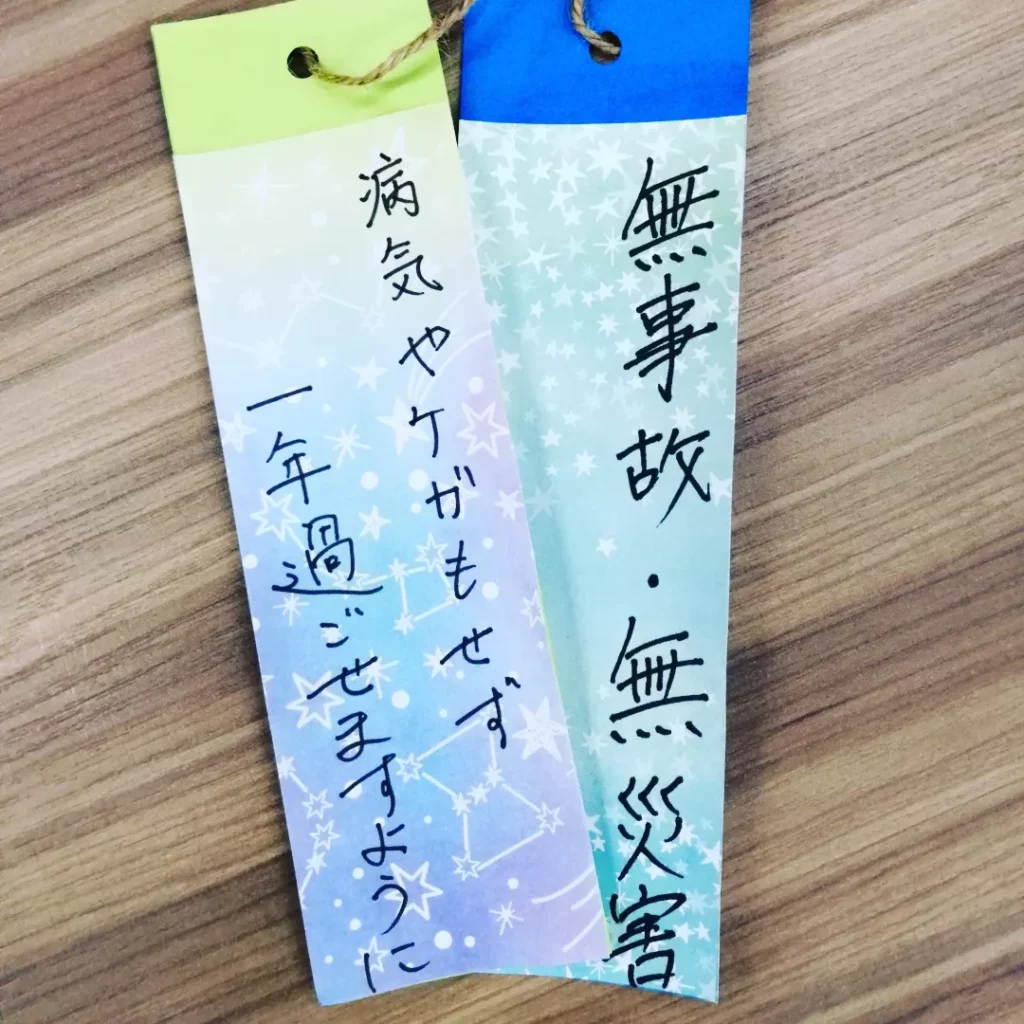 無事故・無災害
病気やケガもせず
一年過ごせますように